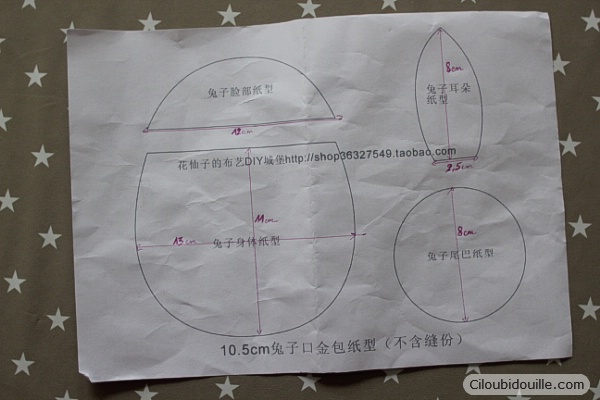 兔子脸部纸型
12cm
8cm
兔子耳朵
纸型
2,5cm
花仙子的布艺DIY城堡http://shop36327549.taobao.com
11cm
13cm
兔子身体纸型
8cm
兔子尾巴纸型
10.5cm兔子口金包纸型（不含缝份）
Ciloubidouille.com